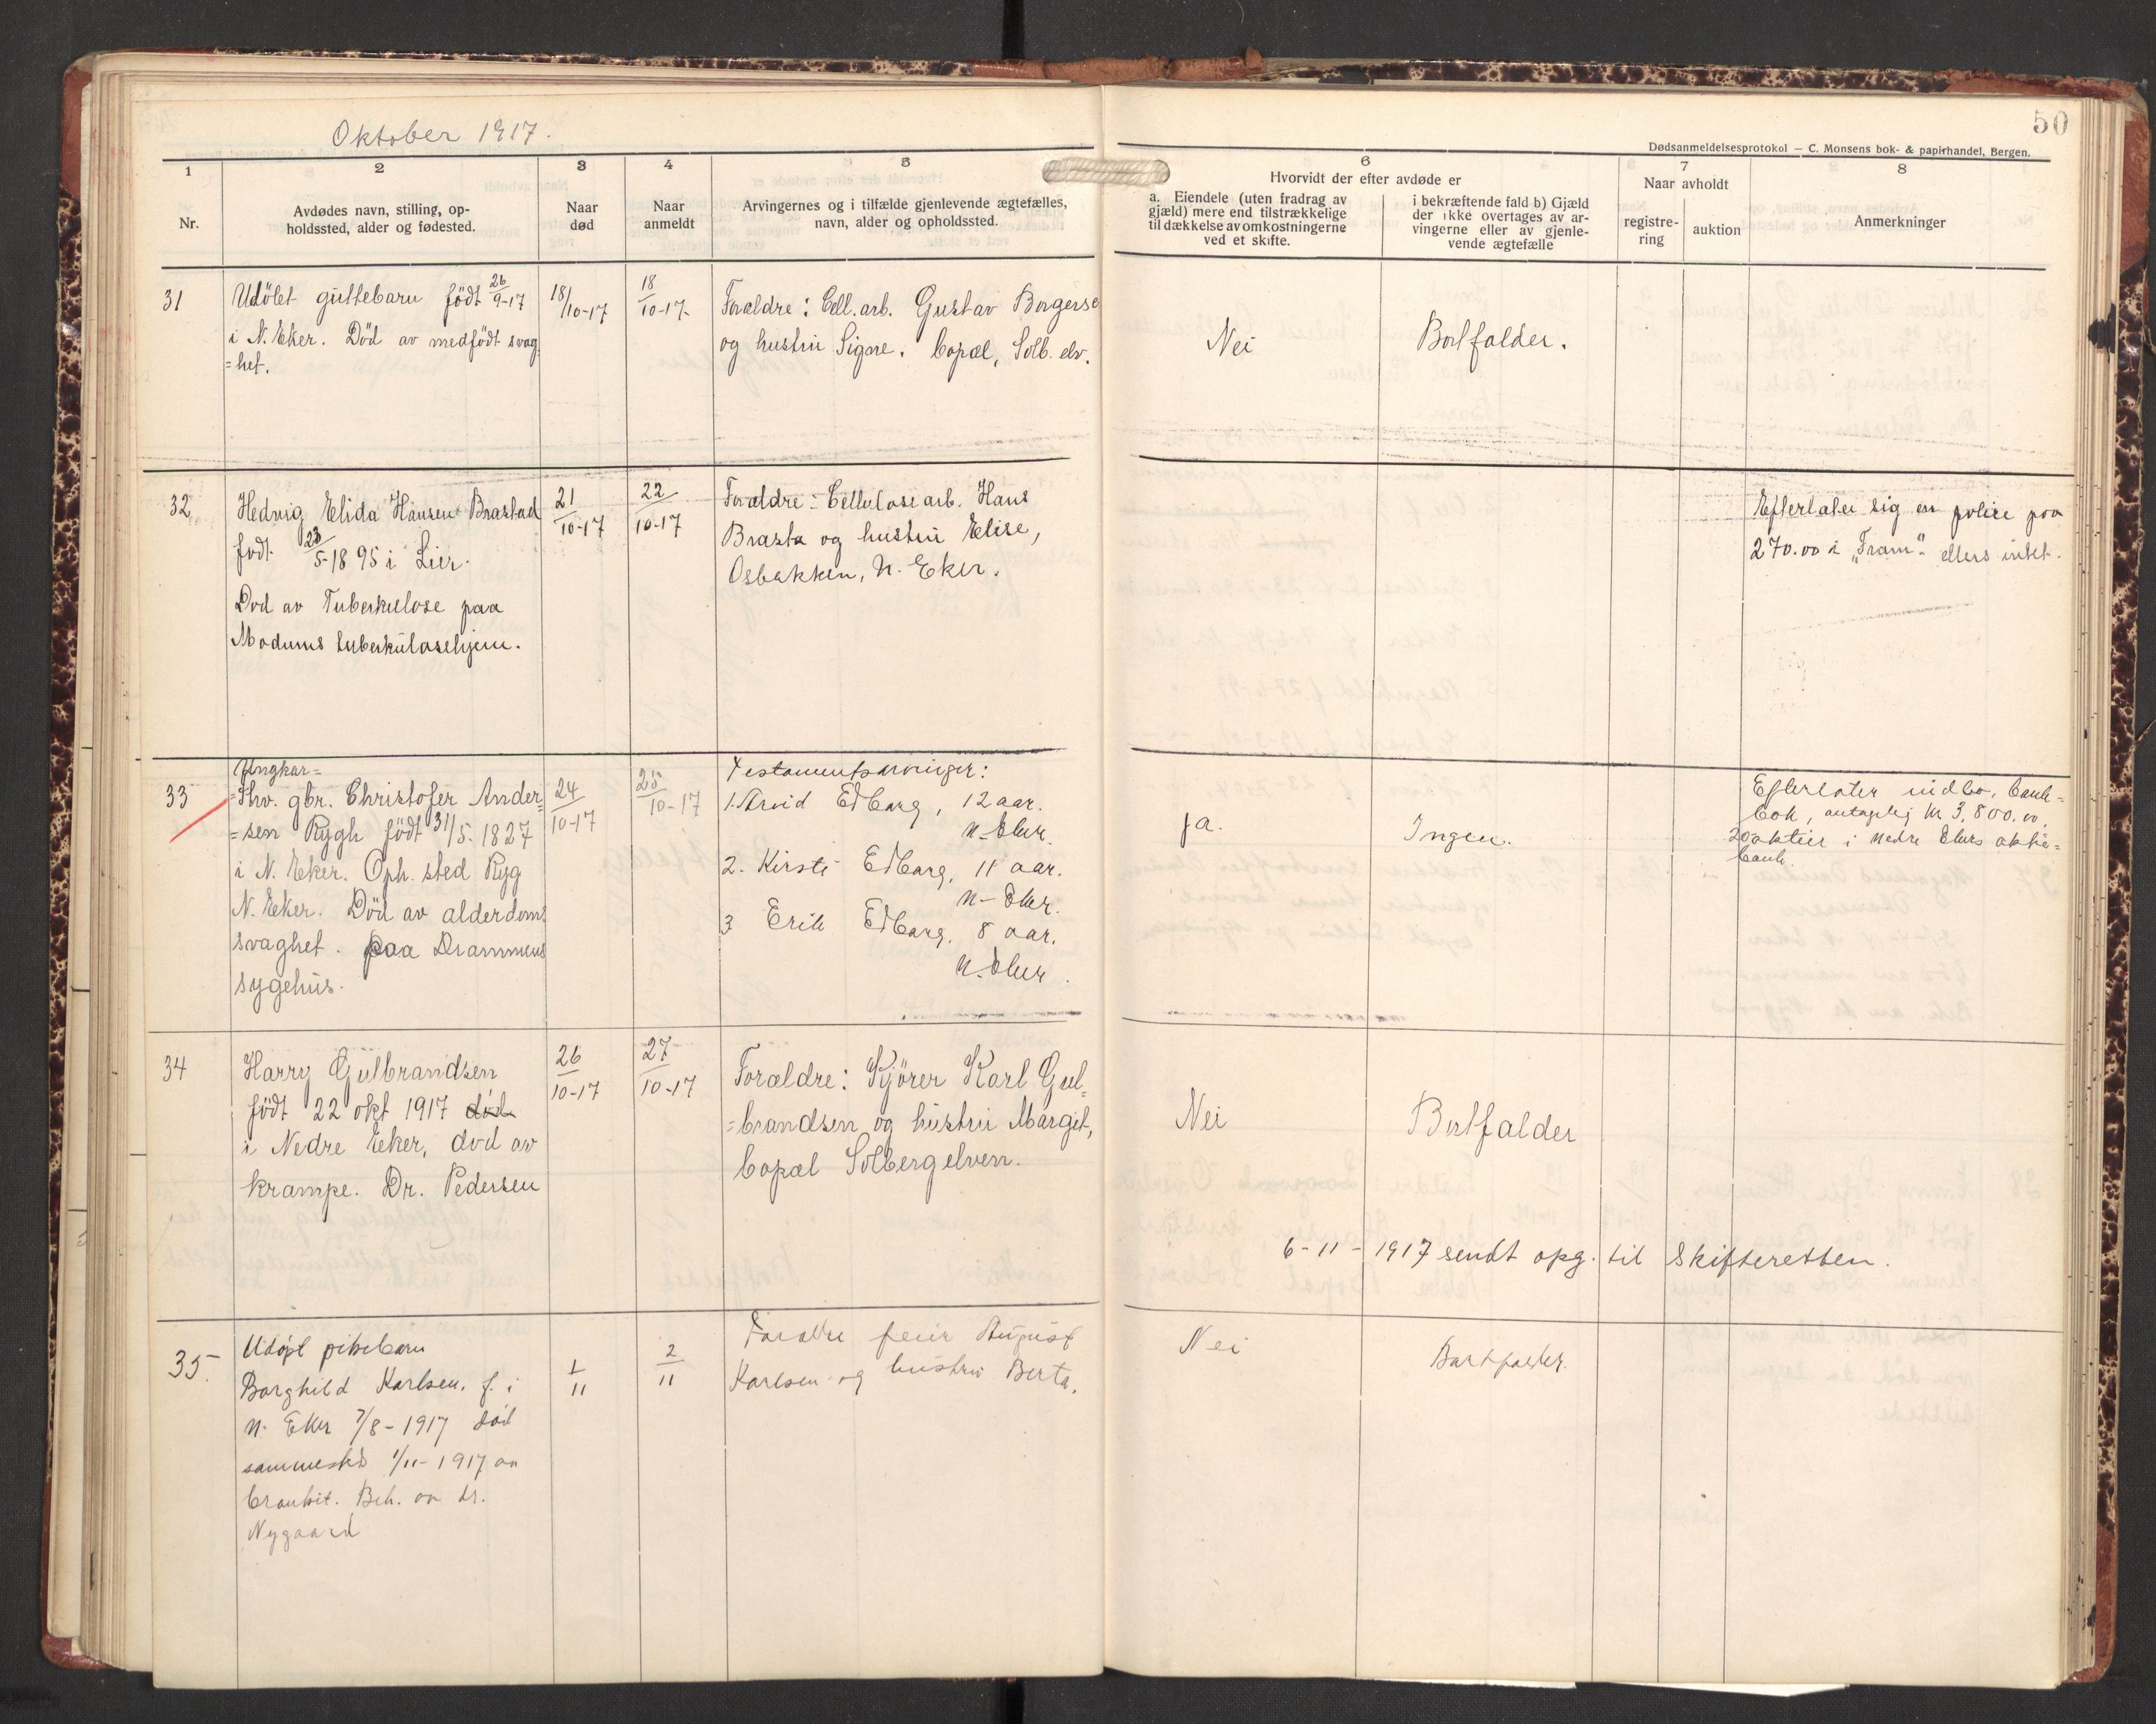 Oktober 1917.
50
Dødsanmeldelsesprotokol — C. Monsens bok- & papirhandel, Bergen.
1
Nr.
2
Avdødes navn, stilling, op-
holdssted, alder og fødested.
3
Naar
død
4
Naar
anmeldt
5
Arvingernes og i tilfælde gjenlevende ægtefælles,
navn, alder og opholdssted.
6
Hvorvidt der efter avdøde er
a. Eiendele (uten fradrag av
gjæld) mere end tilstrækkelige
til dækkelse av omkostningerne
ved et skifte.
i bekræftende fald b) Gjæld
der ikke overtages av ar-
vingerne eller av gjenle-
vende ægtefælle
7
Naar avholdt
registre-
ring
auktion
8
Anmerkninger
31
Udöbt guttebarn födt 26/9-17
i N. Eker. Död av medfödt svag
=het.
18/10-17
18/10-17
Forældre: Cell. arb. Gustav Borgerse
og hustru Signe. Copal, Solb. elv.
Nei
Bortfalder.
32
Hedvig Elida Hansen Brastad
födt 23/5-1895 i Lier.
Död av Tuberkulose paa
Modums tuberkulosehjem.
21/10-17
22/10-17
Forældre: Cellulosearb. Hans
Brasta og hustru Elise,
Osbakken, N. Eker.
Efterlater sig en police paa
270.00 i „Fram“ ellers intet.
33
Ungkar=
=Fhv. gbr. Christofer Ander=
=sen Rygh födt 31/5. 1827
i N. Eker. Oph. sted Ryg
N. Eker. Död av alderdoms
svaghet. paa Drammens
sygehus.
24/10-17
25/10-17
Testamentsarvinger:
1. Arvid Edbarg, 12 aar.
N. Eker.
2. Kirsti Edbarg, 11 aar.
N- Eker.
3 Erik Edbarg, 8 aar.
N. Eker.
Ja.
Ingen.
Efterlater indbo, bank=
bok, antagelig kr 3,800.00,
20 aktier i Nedre Ekers aktie=
bank.
34
Harry Gulbrandsen
födt 22 okt 1917 död
i Nedre Eker, död av
krampe. Dr. Pedersen
26/10-17
27/10-17
Forældre: Kjörer Karl Gul=
=brandsen og hustru Margit,
Copal Solbergelven.
Nei
Bortfalder
6-11-1917 sendt opg. til Skifteretten.
35
Udøpt pikebarn
Borghild Karlsen. f. i
N. Eker 7/8-1917 död
sammested 1/11-1917 av
bronkit. Beh. av dr.
Nygaard
1/11
2/11
Forældre feier August
Karlsen og hustru Berta.
Nei
Bortfalder.